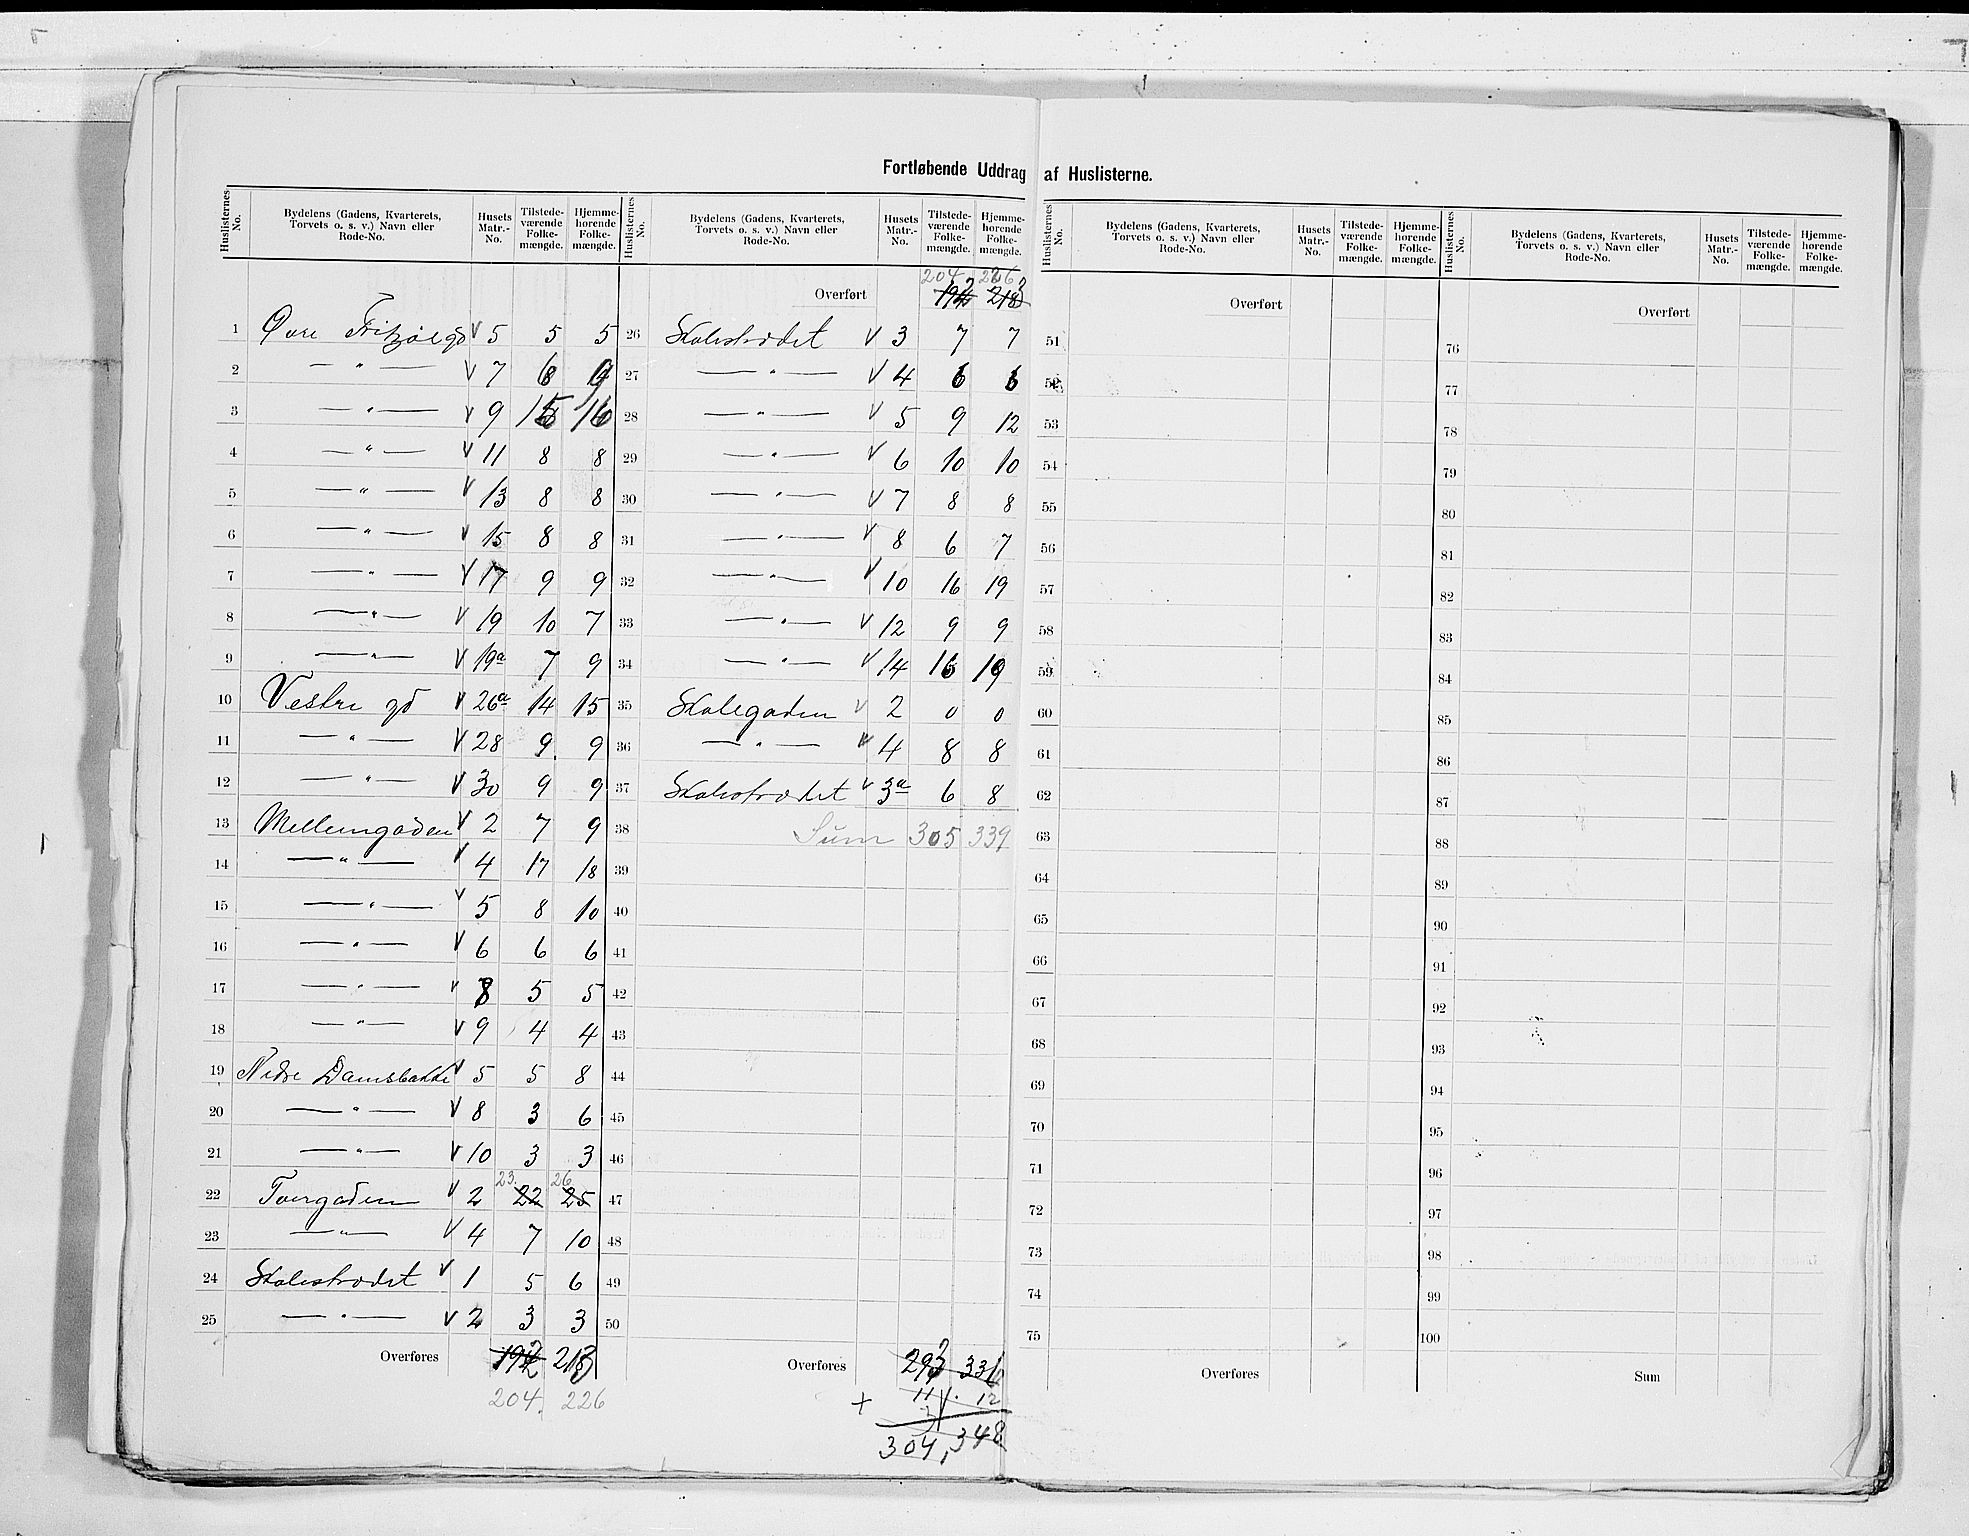 Fortløbende Uddrag af Huslisterne.
Huslisternes No. | Bydelens (Gadens, Kvarterets, Torvets o. s. v.) Navn eller Rode-No. | Husets Matr.-No. | Tilstede-værende Folke-mængde. | Hjemme-hørende Folke-mængde.
Huslisternes No. | Bydelens (Gadens, Kvarterets, Torvets o. s. v.) Navn eller Rode-No. | Husets Matr.-No. | Tilstede-værende Folke-mængde. | Hjemme-hørende Folke-mængde.
Huslisternes No. | Bydelens (Gadens, Kvarterets, Torvets o. s. v.) Navn eller Rode-No. | Husets Matr.-No. | Tilstede-værende Folke-mængde. | Hjemme-hørende Folke-mængde.
Huslisternes No. | Bydelens (Gadens, Kvarterets, Torvets o. s. v.) Navn eller Rode-No. | Husets Matr.-No. | Tilstede-værende Folke-mængde. | Hjemme-hørende Folke-mængde.
1 Øvre Fritzøegd V 5 5 5
2 — " — V 7
3 — " — V 9 16
4 — " — V 11 8 8
5 — " — V 13 8 8
6 — " — V 15 8 8
7 — " — V 17 9 9
8 — " — V 19 10 7
9 — " — V 19a 7 9
10 Vestre gd V 26a 14 15
11 — " — V 28 9 9
12 — " — V 30 9 9
13 Mellemgaden V 2 7 9
14 — " — V 4 17 18
15 — " — V 5 8 10
16 — " — V 6 6 6
17 — " — V 8 5 5
18 — " — V 9 4 4
19 Nedre Damsbakke V 5 5 8
20 — " — V 8 3 6
21 — " — V 10 3 3
23. 26
22 Tvergaden V 2 22 25
23 — " — V 4 7 10
24 Skolestrædet V 1 5 6
25 — " — V 2 3 3
Overføres
204. 226
204 226
Overført
26 Skolestrædet V 3 7 7
27 — " — V 4 6 6
28 — " — V 5 9 12
29 — " — V 6 10 10
30 — " — V 7 8 8
31 — " — V 8 6 7
32 — " — V 10 16 19
33 — " — V 12 9 9
34 — " — V 14 16 19
35 Skolegaden V 2 0 0
36 — " — V 4 8 8
37 Skolestrædet V 3a 6 8
38 Sum 305 339
39
40
41
42
43
44
45
46
47
48
49
50
Overføres
+ 12
304, 348
Overført
51
52
53
54
55
56
57
58
59
60
61
62
63
64
65
66
67
68
69
70
71
72
73
74
75
Overføres
Overført
76
77
78
79
80
81
82
83
84
85
86
87
88
89
90
91
92
93
94
95
96
97
98
99
100
Sum